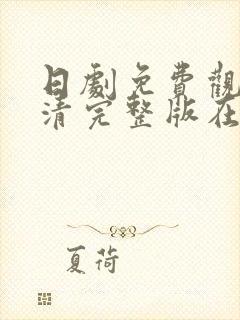 日劇免費觀
清完整版在
夏荷